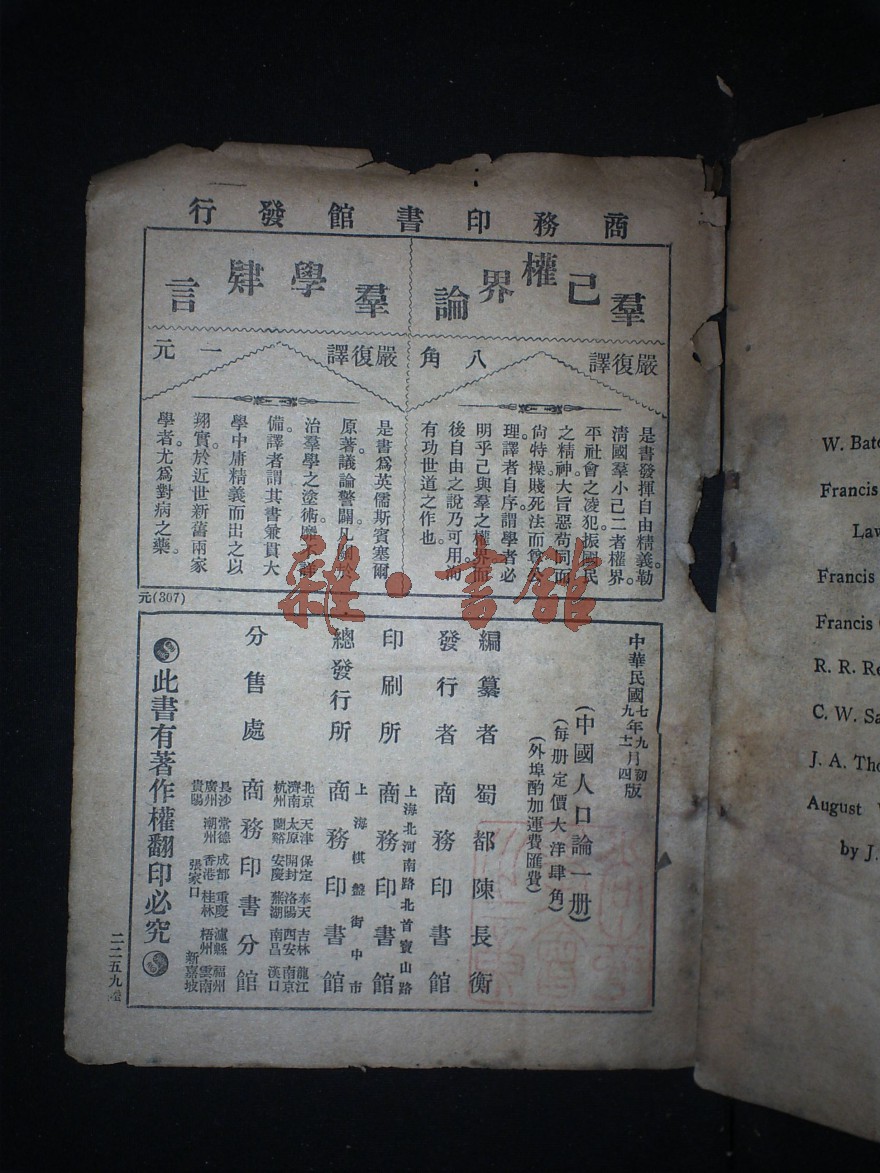 商務印書館發行
羣己權界論
嚴復譯
八角
是書發揮自由精義。勒
清國羣小己二者權界。
平社會之凌犯。振國民
之精神。大旨惡苟同而
尙特操。賤死法而尊公
理。譯者自序。謂學者必
明乎己與羣之權界。而
後自由之說乃可用。洵
有功世道之作也。
羣學肄言
嚴復譯
一元
是書爲英儒斯賓塞爾
原著。議論警闢。凡關於
治羣學之塗術。靡不詳
備。譯者謂其書兼貫大
學中庸精義。而出之以
翔實。於近世新舊兩家
學者。尤爲對病之藥。
元(307)
中華民國七年九月初版
九年十二月四版
(中國人口論一册)
(每册定價大洋肆角)
(外埠酌加運費匯費)
編纂者 蜀都陳長衡
發行者 商務印書館
上海北河南路北首寶山路
印刷所 商務印書館
上海棋盤街中市
總發行所 商務印書館
分售處 商務印書分館
北京 天津 保定 奉天 吉林 龍江
濟南 太原 開封 洛陽 西安 南京
杭州 蘭谿 安慶 蕪湖 南昌 漢口
長沙 常德 成都 重慶 瀘縣 福州
廣州 潮州 香港 桂林 梧州 雲南
貴陽 張家口 新嘉坡
此書有著作權翻印必究
二二五九
雜·書館
W. Bate
Francis
Law
Francis
Francis
R. R. Re
C. W. Sa
J. A. Tho
August
by J.